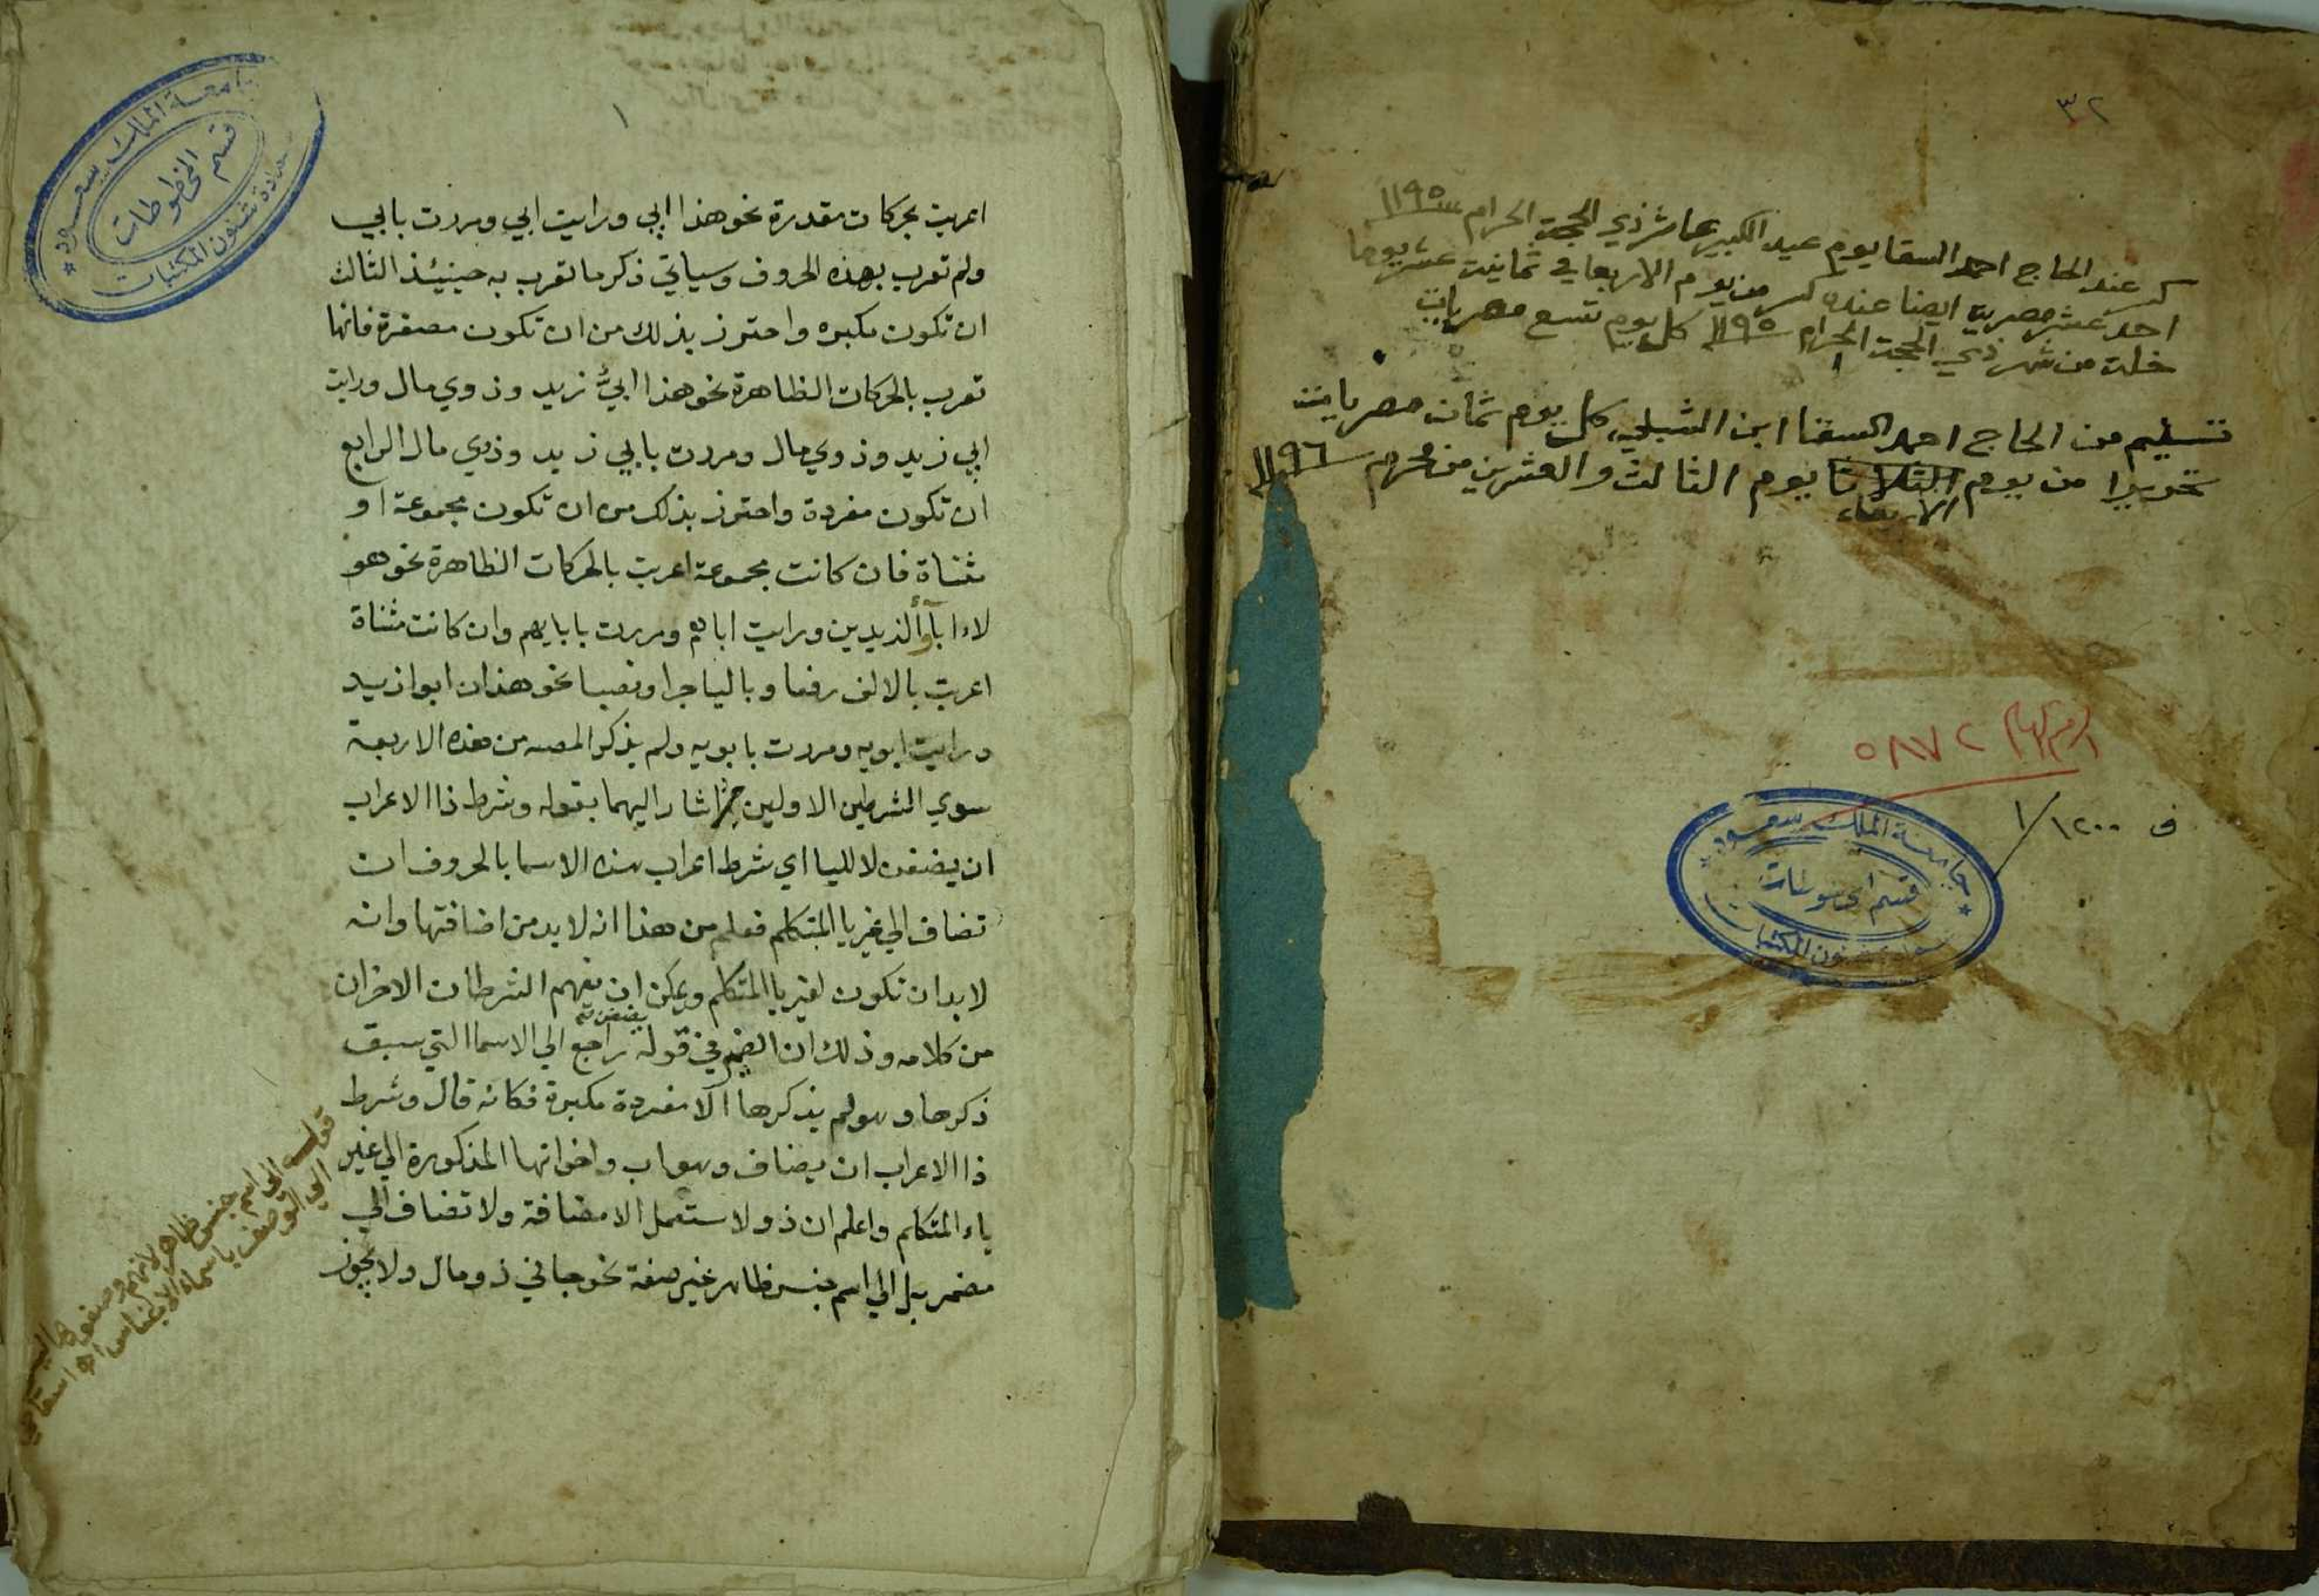 ٣٢
عند الحاج احمد السقا يوم عيد الكبير عاشر ذي الحجة الحرام سنة ١١٩٥
احد عشر مصرية ايضا عنده من يوم الاربعا في ثمانية عشر يوما
خلت من شهر ذي الحجة الحرام سنة ١١٩٥ كل يوم تسع مصريات
تسليم من الحاج احمد السقا ابن الشبلي كل يوم ثمان مصريات
تحريرا من يوم الثلاثا يوم الثالث والعشرين من محرم سنة ١١٩٦
الاربعاء
الرقم العام ٥٨٧٢
ف ١٢٠٠/١
جامعة الملك سعود
قسم المخطوطات
عمادة شئون المكتبات
جامعة الملك سعود
قسم المخطوطات
عمادة شئون المكتبات
١
اعربت بحركات مقدرة نحو هذا ابي ورايت ابي ومررت بابي
ولم تعرب بهذه الحروف وسياتي ذكر ما تعرب به حينيئذ الثالث
ان تكون مكبره واحترز بذلك من ان تكون مصغرة فانها
تعرب بالحركات الظاهرة نحو هذا ابيُّ زيد وذوي مال ورايت
ابي زيد وذوي مال ومررت بابي زيد وذوي مال الرابع
ان تكون مفردة واحترز بذلك من ان تكون مجموعة او
مثناة فان كانت مجموعة اعربت بالحركات الظاهرة نحو هو
لاء اباؤ الزيدين ورايت اباهم ومررت بابايهم وان كانت مثناة
اعربت بالالف رفعا وباليا جرا ونصبا نحو هذان ابوا زيد
ورايت ابويه ومررت بابويه ولم يذكر المصـ من هذه الاربعة
سوي الشرطين الاولين ثم اشار اليهما بقوله وشرط ذا الاعراب
ان يضفن لا لليا اي شرط اعراب هذه الاسما بالحروف ان
تضاف الي غير يا المتكلم فعلم من هذا انه لا بد من اضافتها وانه
لا بد ان تكون لغير يا المتكلم ويمكن ان يفهم الشرطان الاخران
من كلامه وذلك ان الضمير في قوله يضفن راجع الي الاسما التي سبق
ذكرها وهو لم يذكرها الا مفردة مكبرة فكانه قال وشرط
ذا الاعراب ان يضاف وهو اب واخواتها المذكورة الي غير
ياء المتكلم واعلم ان ذو لا ستعمل الا مضافة ولا تضاف الي
مضمر بل الي اسم جنس ظاهر غير صفة نحو جاني ذو مال ولا يجوز
قوله الي اسم جنس ظاهر لانهم وضعوها ليتوصلوا
الي الوصف باسماء الاجناس اهـ